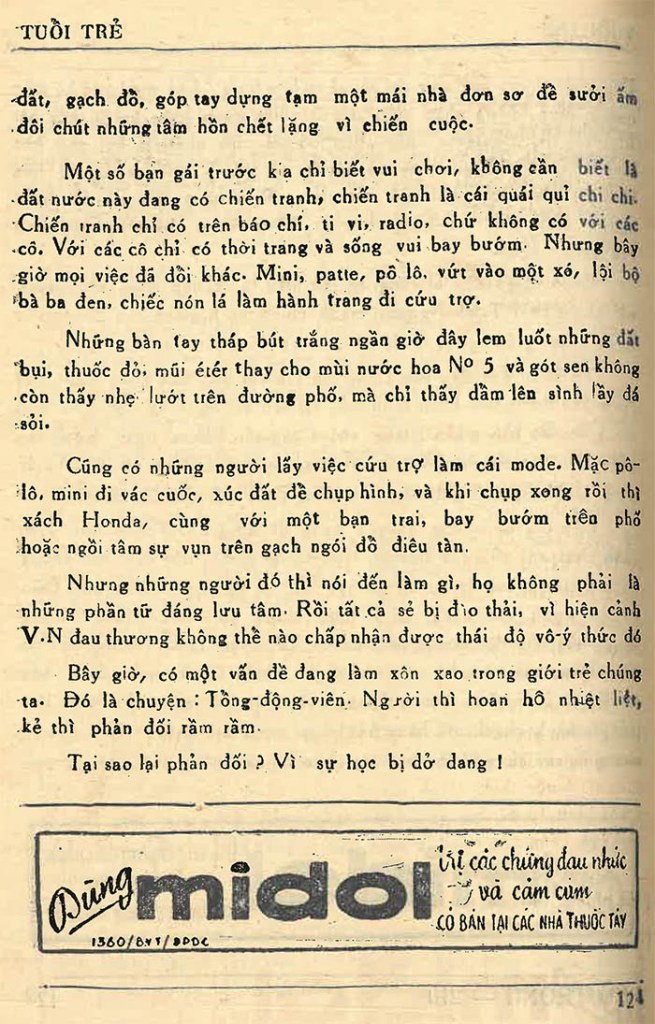 TUỔI TRẺ
đất, gạch đồ, góp tay dựng tạm một mái nhà đơn sơ đề sưởi ấm
đôi chút những tâm hồn chết lặng vì chiến cuộc.
Một số bạn gái trước kia chỉ biết vui chơi, không cần biết là
đất nước này đang có chiến tranh, chiến tranh là cái quái quỉ chi chi.
Chiến tranh chỉ có trên báo chí, ti vi, radio, chứ không có với các
cô. Với các cô chỉ có thời trang và sống vui bay bướm. Nhưng bây
giờ mọi việc đã đồi khác. Mini, patte, pô lô, vứt vào một xó, lội bộ
bà ba đen, chiếc nón lá làm hành trang đi cứu trợ.
Những bàn tay tháp bút trắng ngần giờ đây lem luốt những đất
bụi, thuốc đỏ, mũi étér thay cho mùi nước hoa Nº 5 và gót sen không
còn thấy nhẹ lướt trên đường phố, mà chỉ thấy dầm lên sình lầy đá
sỏi.
Cũng có những người lấy việc cứu trợ làm cái mode. Mặc pô-
lô, mini đi vác cuốc, xúc đất đề chụp hình, và khi chụp xong rồi thì
xách Honda, cùng với một bạn trai, bay bướm trên phố
hoặc ngồi tâm sự vụn trên gạch ngói đồ điêu tàn.
Nhưng những người đó thì nói đến làm gì, họ không phải là
những phần tử đáng lưu tâm. Rồi tất cả sẻ bị đào thải, vì hiện cảnh
V.N đau thương không thề nào chấp nhận được thái độ vô-ý thức đó
Bây giờ, có một vấn đề đang làm xôn xao trong giới trẻ chúng
ta. Đó là chuyện : Tồng-động-viên. Người thì hoan hô nhiệt liệt,
kẻ thì phản đối rầm rầm.
Tại sao lại phản đối ? Vì sự học bị dở dang !
Dùng midol
trị các chứng đau nhức
và cảm cúm
CÓ BÁN TẠI CÁC NHÀ THUỐC TÂY
1360/BYT/DPDC
121